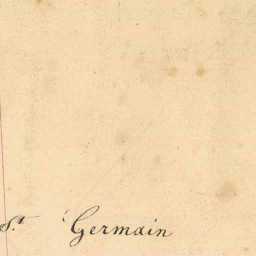 St. Germain